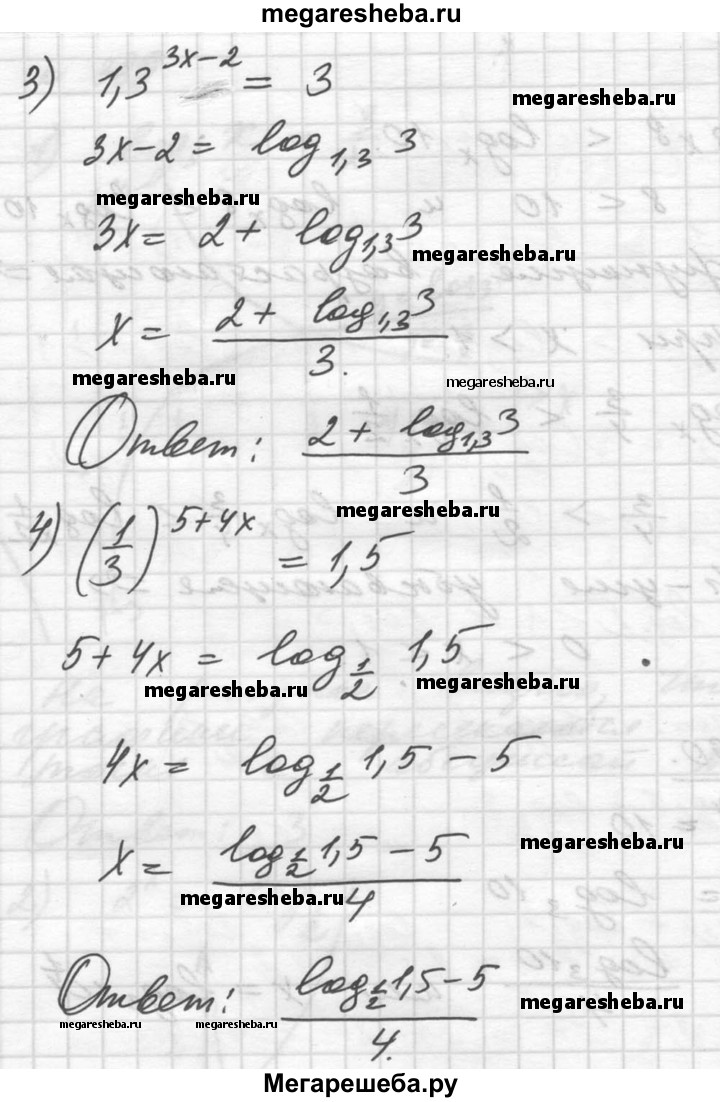 megaresheba.ru
3) 1,3^(3x-2) = 3
megaresheba.ru
3x-2 = log_1,3 3
megaresheba.ru
3x = 2 + log_1,3 3
megaresheba.ru
x = (2 + log_1,3 3)/3.
megaresheba.ru
megaresheba.ru
Ответ: (2 + log_1,3 3)/3
megaresheba.ru
4) (1/3)^(5+4x) = 1,5
5+4x = log_(1/2) 1,5
megaresheba.ru megaresheba.ru
4x = log_(1/2) 1,5 - 5
x = (log_(1/2) 1,5 - 5)/4
megaresheba.ru
megaresheba.ru
Ответ: (log_(1/2) 1,5 - 5)/4.
megaresheba.ru megaresheba.ru megaresheba.ru
Мегарешеба.ру